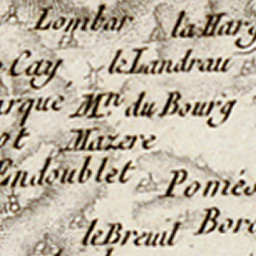 Lombar
la Harg
Cay
le Landrau
arqué
M.ⁿ du Bourg
ot
Mazere
Endoublet
Pomés
le Breuil
Bord